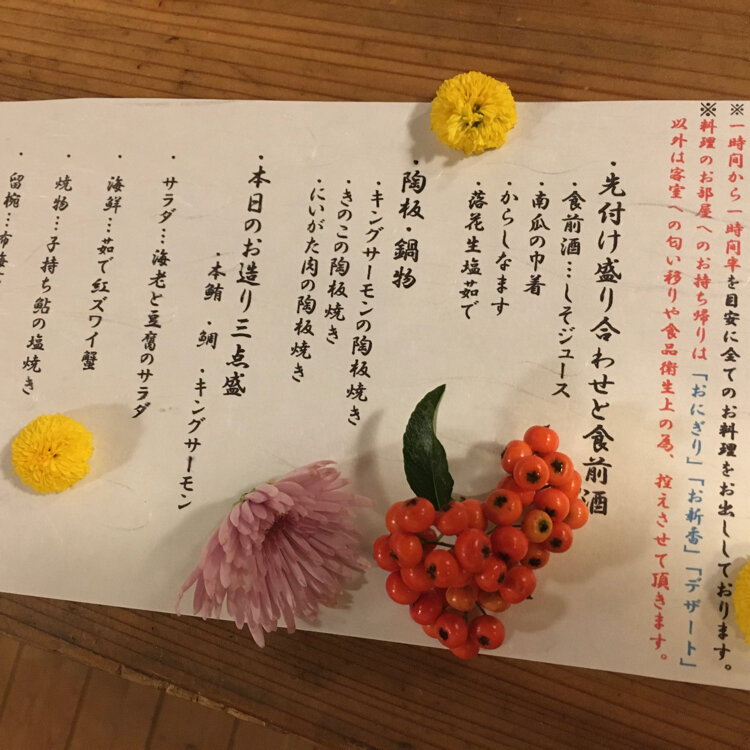 ※一時間から一時間半を目安に全てのお料理をお出ししております。
※料理のお部屋へのお持ち帰りは「おにぎり」「お新香」「デザート」
以外は客室への匂い移りや食品衛生上の為、控えさせて頂きます。
・先付け盛り合わせと食前酒
・食前酒…しそジュース
・南瓜の巾着
・からしなます
・落花生塩茹で
・陶板・鍋物
・キングサーモンの陶板焼き
・きのこの陶板焼き
・にいがた肉の陶板焼き
・本日のお造り三点盛
・本鮪 ・鯛 ・キングサーモン
・サラダ…海老と豆腐のサラダ
・海鮮…茹で紅ズワイ蟹
・焼物…子持ち鮎の塩焼き
・留椀…布海